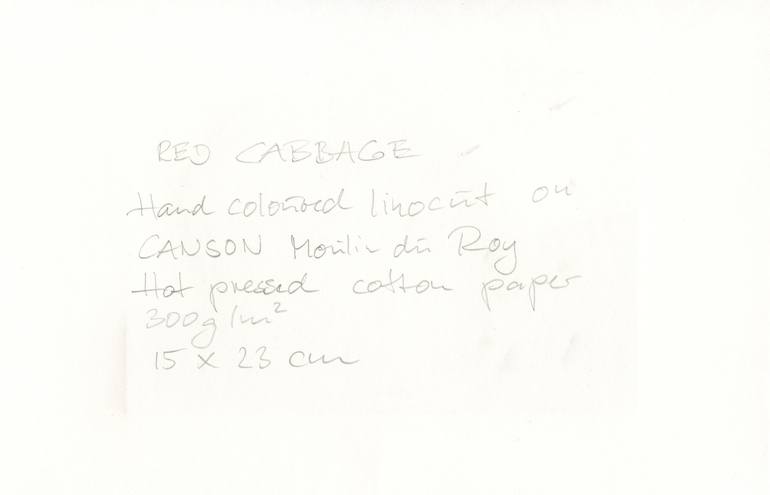 RED CABBAGE
Hand coloured linocut on
CANSON Moulin du Roy
Hot pressed cotton paper
300g/m²
15 x 23 cm